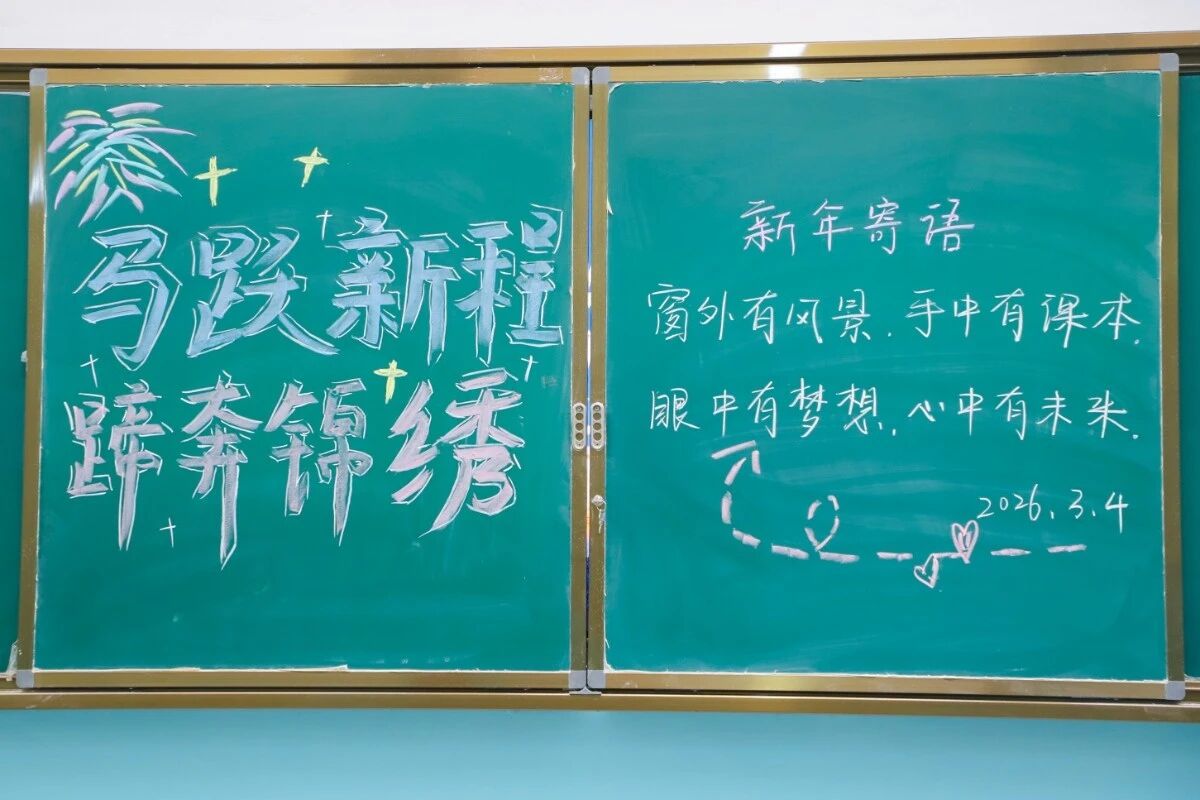 马跃新程
蹄奔锦绣
新年寄语
窗外有风景.手中有课本.
眼中有梦想.心中有未来.
2026.3.4